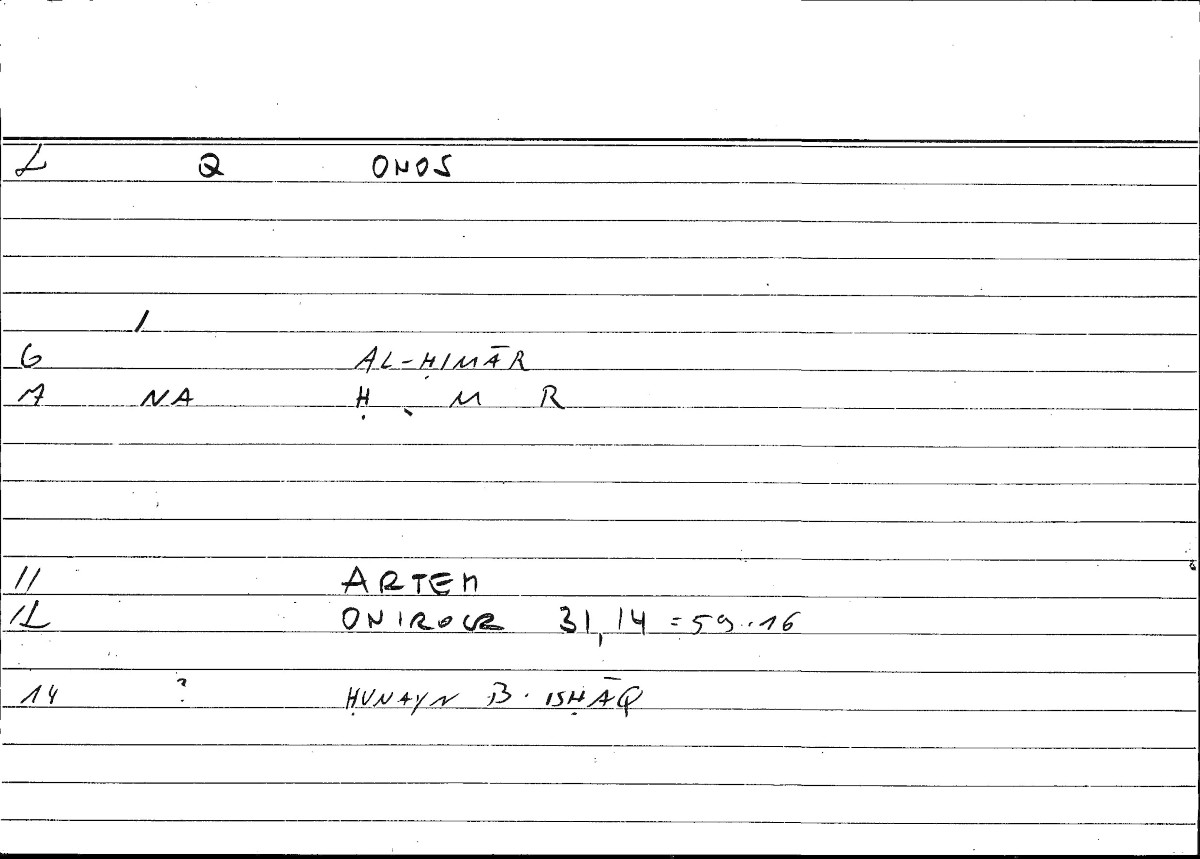 2 Q ONOS
/
6 AL-ḤIMĀR
7 NA Ḥ M R
11 ARTEM
12 ONIROCR 31,14 = 59.16
14 ? ḤUNAYN B. ISḤĀQ